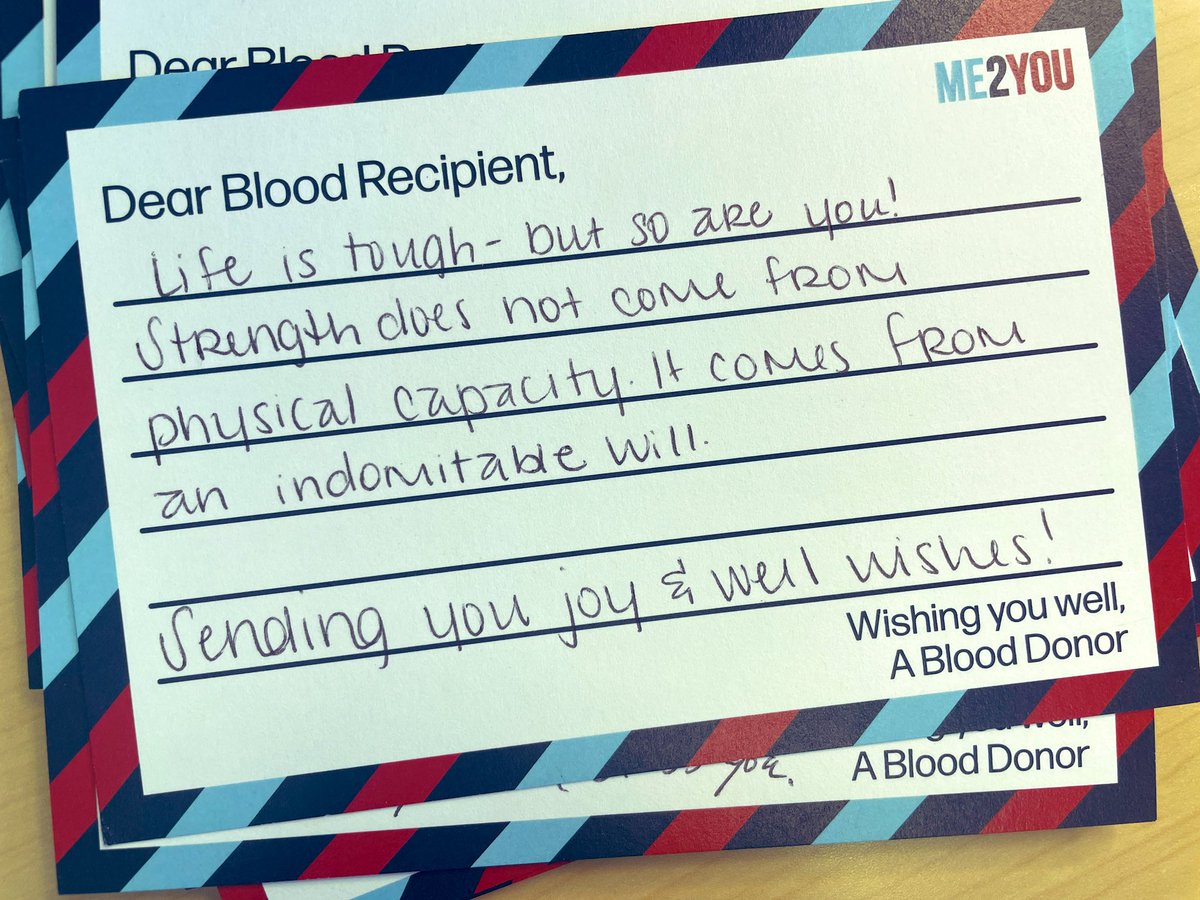 Dear Blood
ME2YOU
Dear Blood Recipient,
Life is tough - but so are you!
Strength does not come from
physical capacity. It comes from
an indomitable will.
Sending you joy & well wishes!
Wishing you well,
A Blood Donor
you.
A Blood Donor